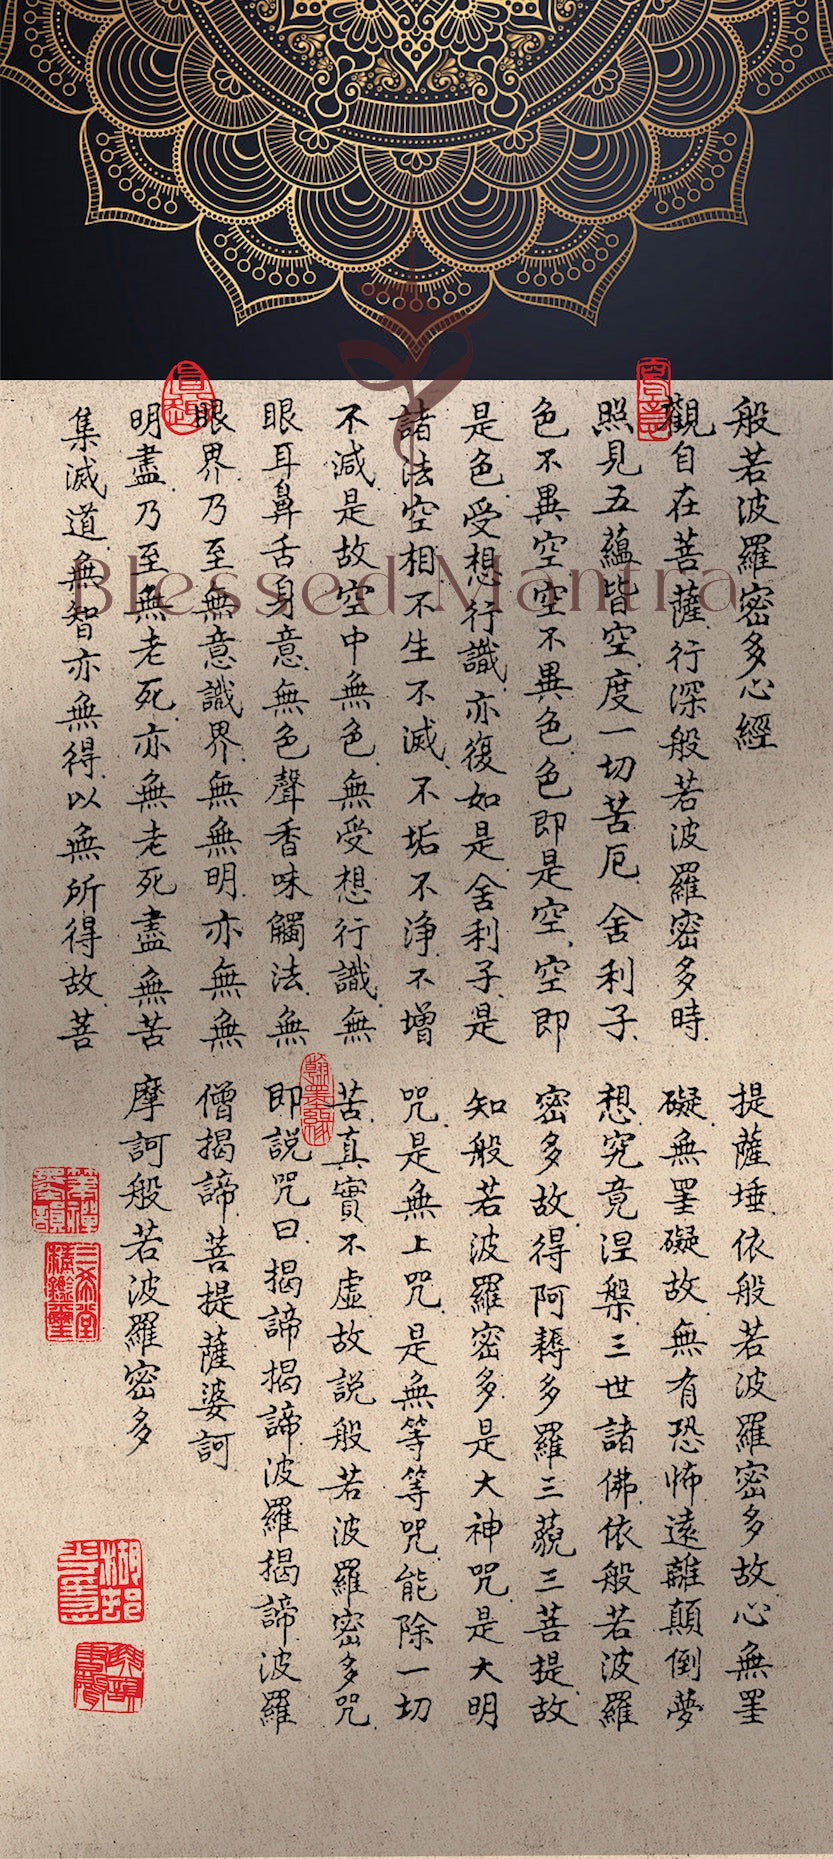 般若波羅密多心經
觀自在菩薩行深般若波羅密多時
照見五蘊皆空度一切苦厄舍利子
色不異空空不異色色即是空空即
是色受想行識亦復如是舍利子是
諸法空相不生不滅不垢不淨不增
不減是故空中無色無受想行識無
眼耳鼻舌身意無色聲香味觸法無
眼界乃至無意識界無無明亦無無
明盡乃至無老死亦無老死盡無苦
集滅道無智亦無得以無所得故菩
提薩埵依般若波羅密多故心無罣
礙無罣礙故無有恐怖遠離顛倒夢
想究竟涅槃三世諸佛依般若波羅
密多故得阿耨多羅三藐三菩提故
知般若波羅密多是大神咒是大明
咒是無上咒是無等等咒能除一切
苦真實不虛故說般若波羅密多咒
即說咒曰揭諦揭諦波羅揭諦波羅
僧揭諦菩提薩婆訶
摩訶般若波羅密多
翰墨緣
三希堂精鑑璽
Blessed Mantra